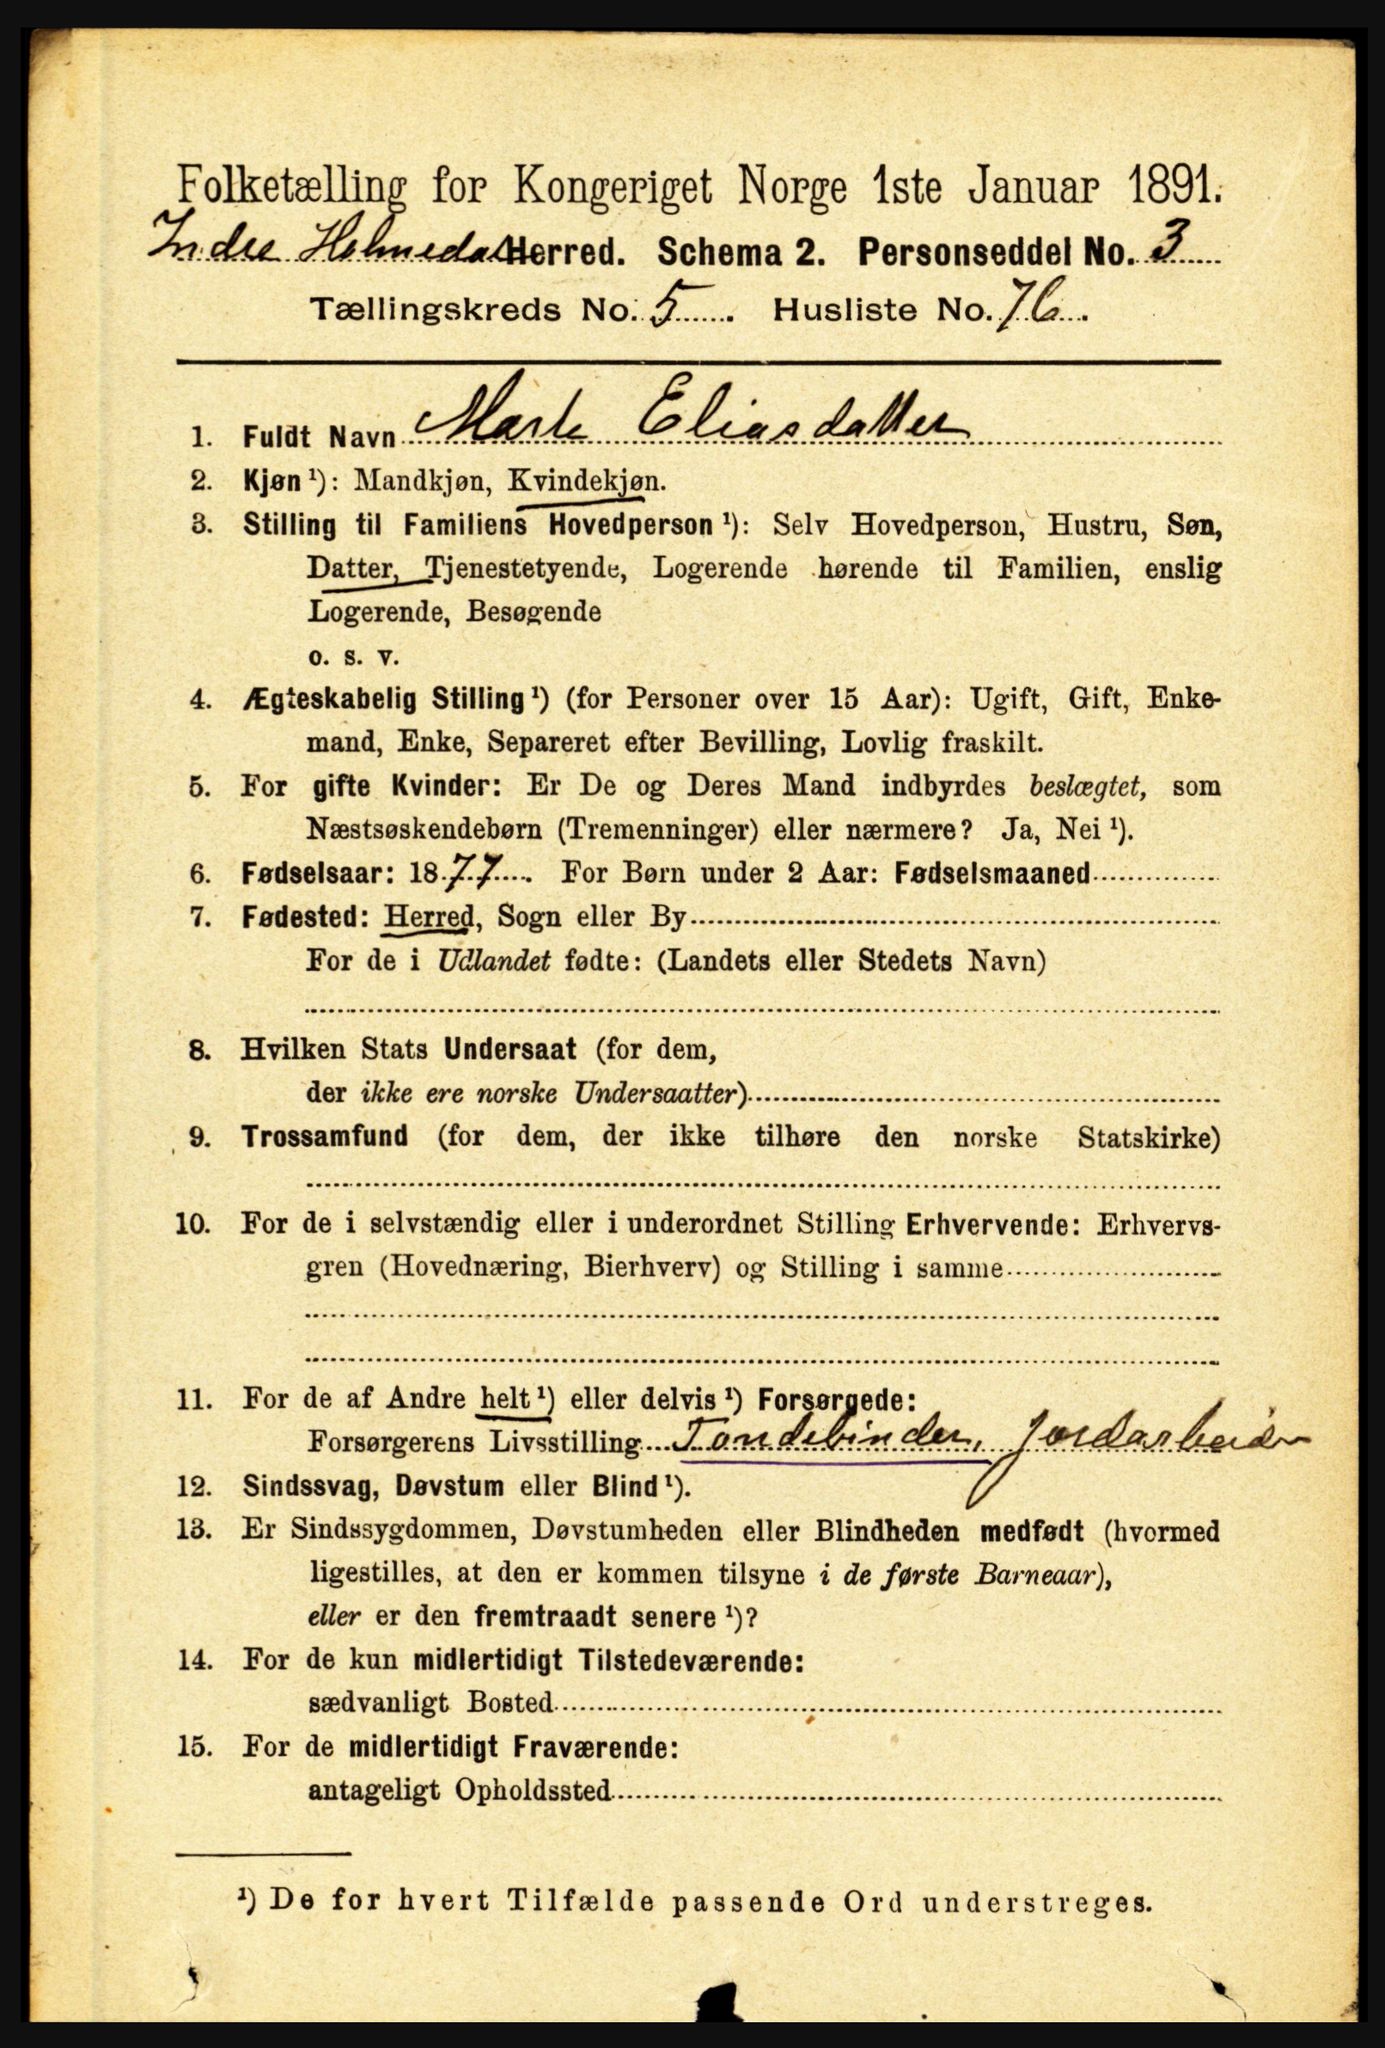 Folketælling for Kongeriget Norge 1ste Januar 1891.
Indre Holmedal Herred. Schema 2. Personseddel No. 3
Tællingskreds No. 5. Husliste No. 76.
1. Fuldt Navn Marte Eliasdatter
2. Kjøn ¹): Mandkjøn, Kvindekjøn.
3. Stilling til Familiens Hovedperson ¹): Selv Hovedperson, Hustru, Søn,
Datter, Tjenestetyende, Logerende hørende til Familien, enslig
Logerende, Besøgende
o. s. v.
4. Ægteskabelig Stilling ¹) (for Personer over 15 Aar): Ugift, Gift, Enke-
mand, Enke, Separeret efter Bevilling, Lovlig fraskilt.
5. For gifte Kvinder: Er De og Deres Mand indbyrdes beslægtet, som
Næstsøskendebørn (Tremenninger) eller nærmere? Ja, Nei ¹).
6. Fødselsaar: 1877. For Børn under 2 Aar: Fødselsmaaned
7. Fødested: Herred, Sogn eller By
For de i Udlandet fødte: (Landets eller Stedets Navn)
8. Hvilken Stats Undersaat (for dem,
der ikke ere norske Undersaatter)
9. Trossamfund (for dem, der ikke tilhøre den norske Statskirke)
10. For de i selvstændig eller i underordnet Stilling Erhvervende: Erhvervs-
gren (Hovednæring, Bierhverv) og Stilling i samme
11. For de af Andre helt ¹) eller delvis ¹) Forsørgede:
Forsørgerens Livsstilling Tøndebinder, Jordarbeider
12. Sindssvag, Døvstum eller Blind ¹).
13. Er Sindssygdommen, Døvstumheden eller Blindheden medfødt (hvormed
ligestilles, at den er kommen tilsyne i de første Barneaar),
eller er den fremtraadt senere ¹)?
14. For de kun midlertidigt Tilstedeværende:
sædvanligt Bosted
15. For de midlertidigt Fraværende:
antageligt Opholdssted
¹) De for hvert Tilfælde passende Ord understreges.